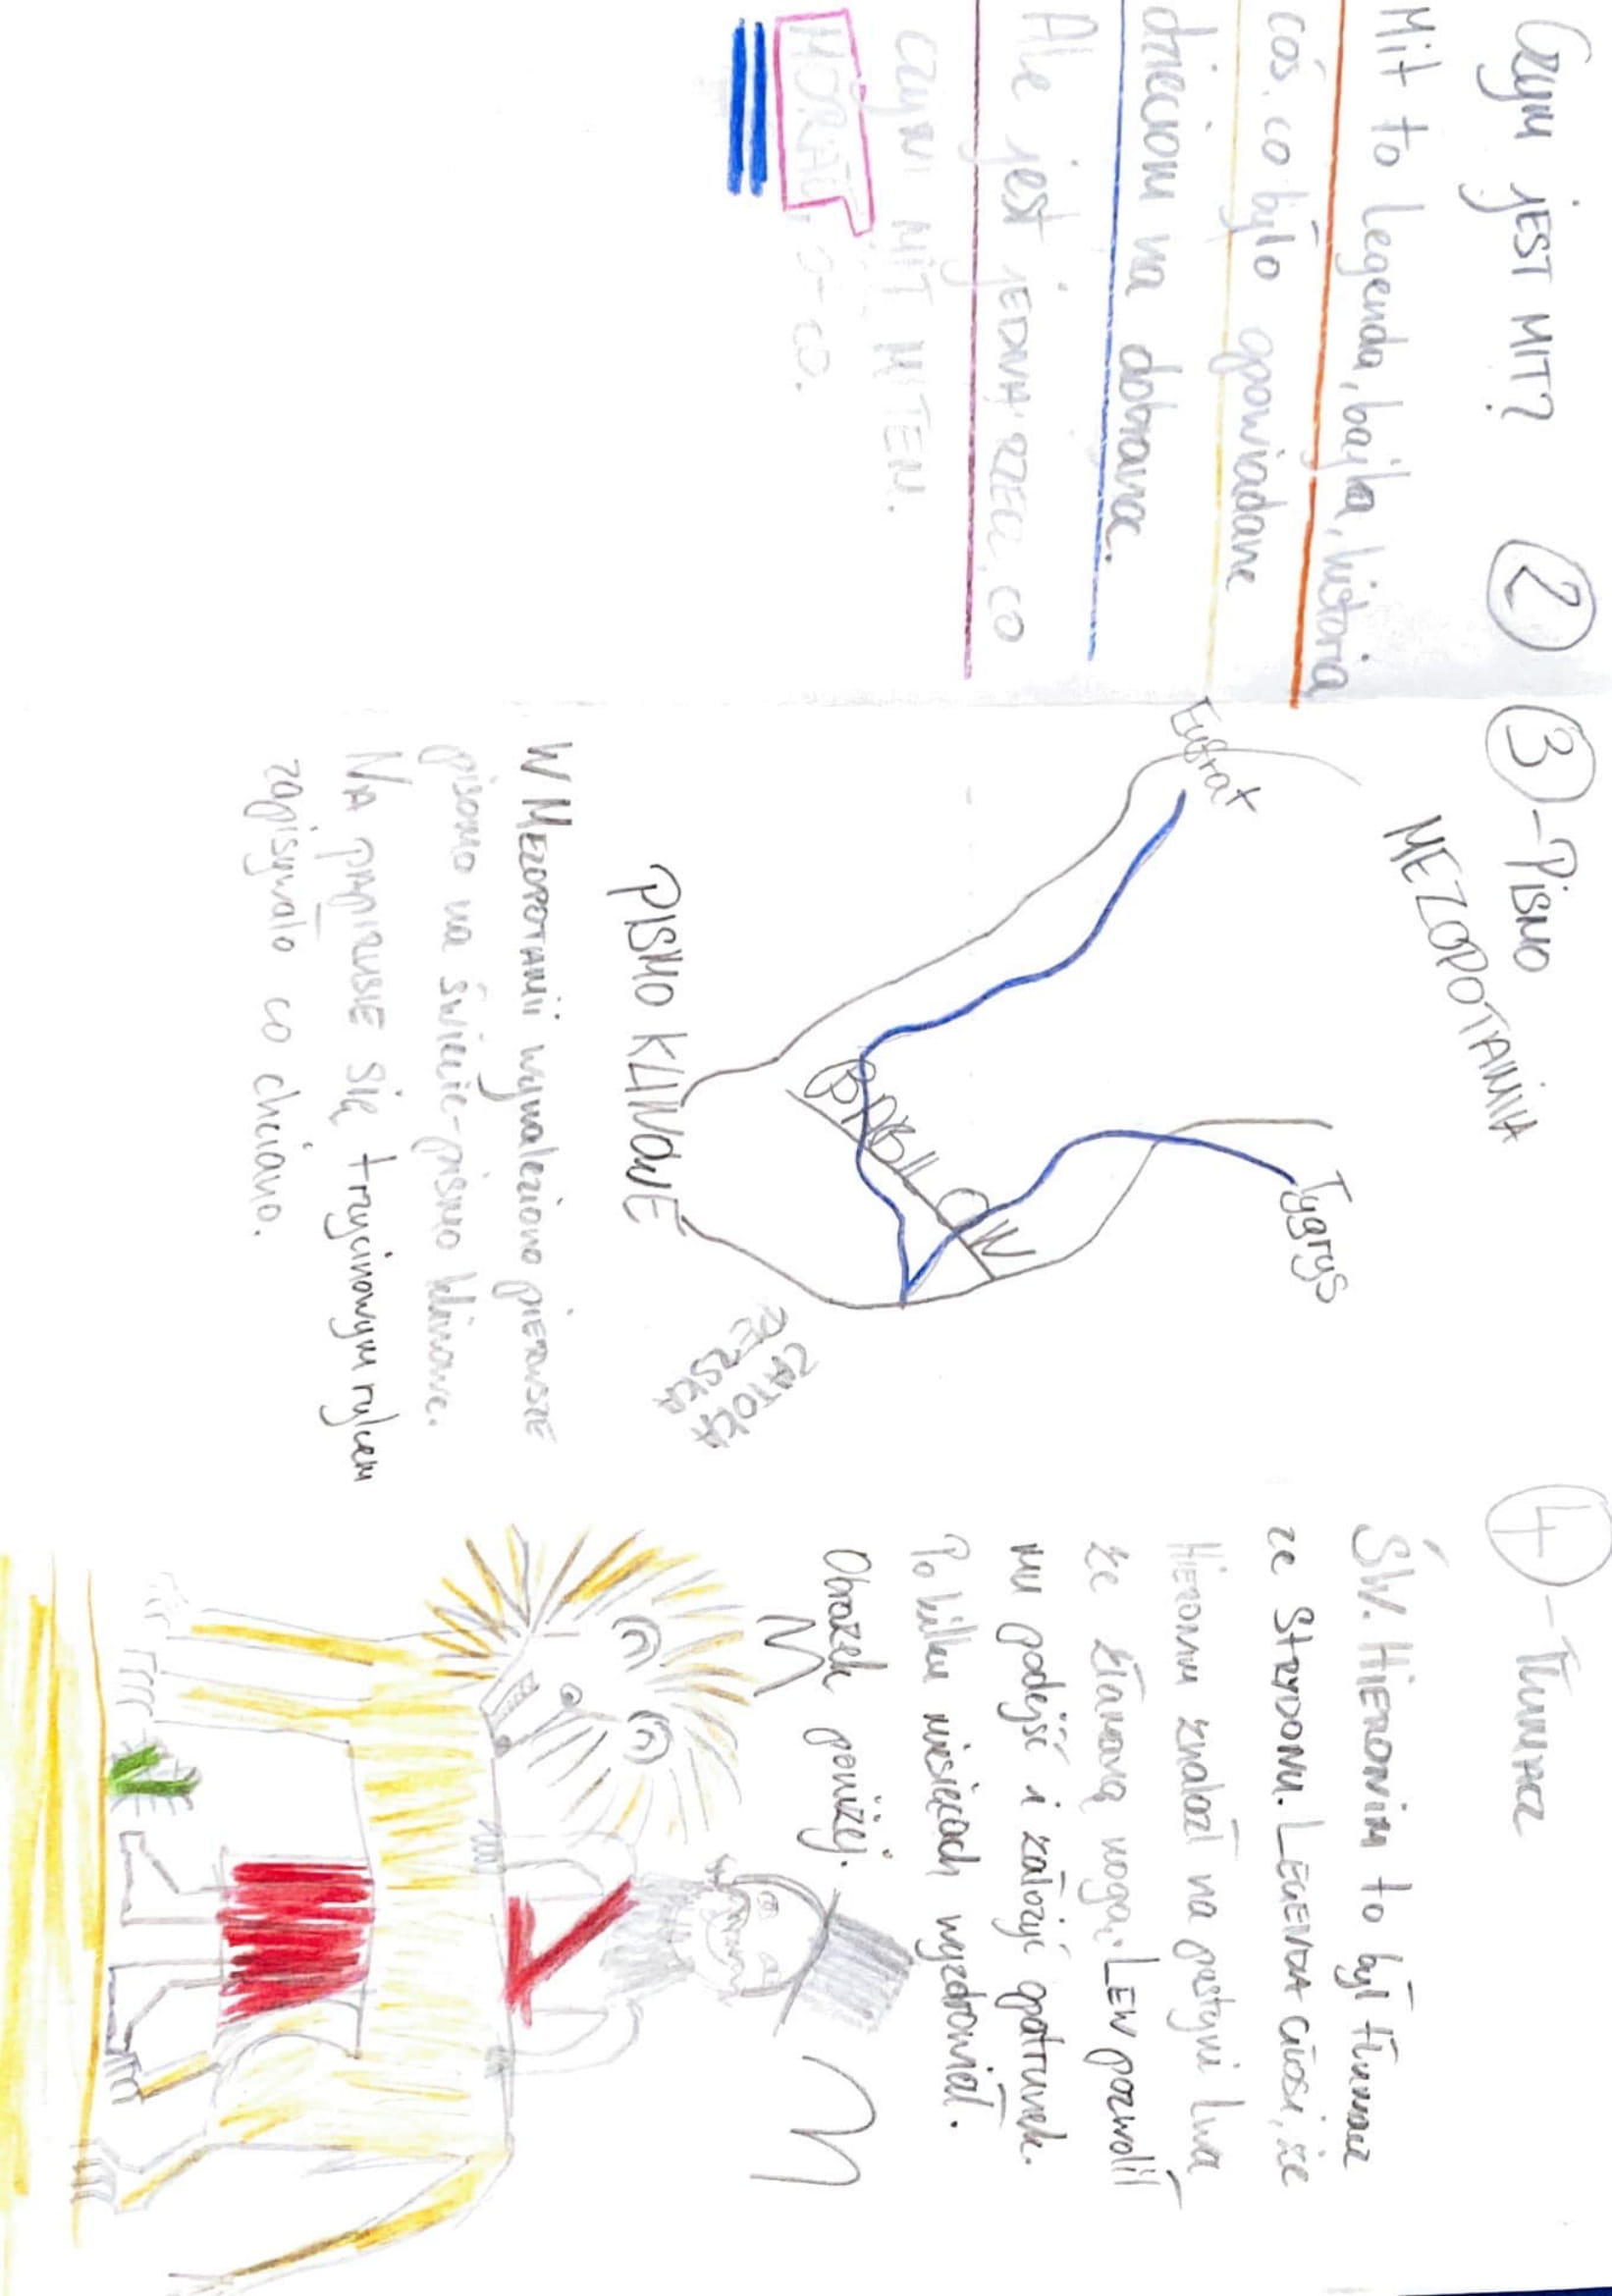 Czym jEST MIT?
Mit to legenda, bajka, historia
coś, co było opowiadane
dzieciom na dobranoc.
Ale jest jEDNA RZECZ, co
czyNi MIT MITEM.
MORAŁ, ot co.
2
3 - Pismo
MEZOPOTAMIA
Eufrat
Tygrys
BABILON
ZATOKA
PERSKA
PISMO KLINOWE
W MEZOPOTAMii wynaleziono piERWSZE
pismo na świecie - pismo klinowe.
NA pApiRUSIE SIĘ trzcinowym rylcem
zapisywało co chciano.
4 - Tłumacz
Św. HiERONiM to był tłumacz
ze STRYDONU. LEGENDA GŁOSi, że
HiERONiM znalazł na pustyni lwa
ze złamaną nogą. LEW pozwolił
mu podejść i założyć opatrunek.
Po kilku miesiącach wyzdrowiał.
Obrazek poniżej.